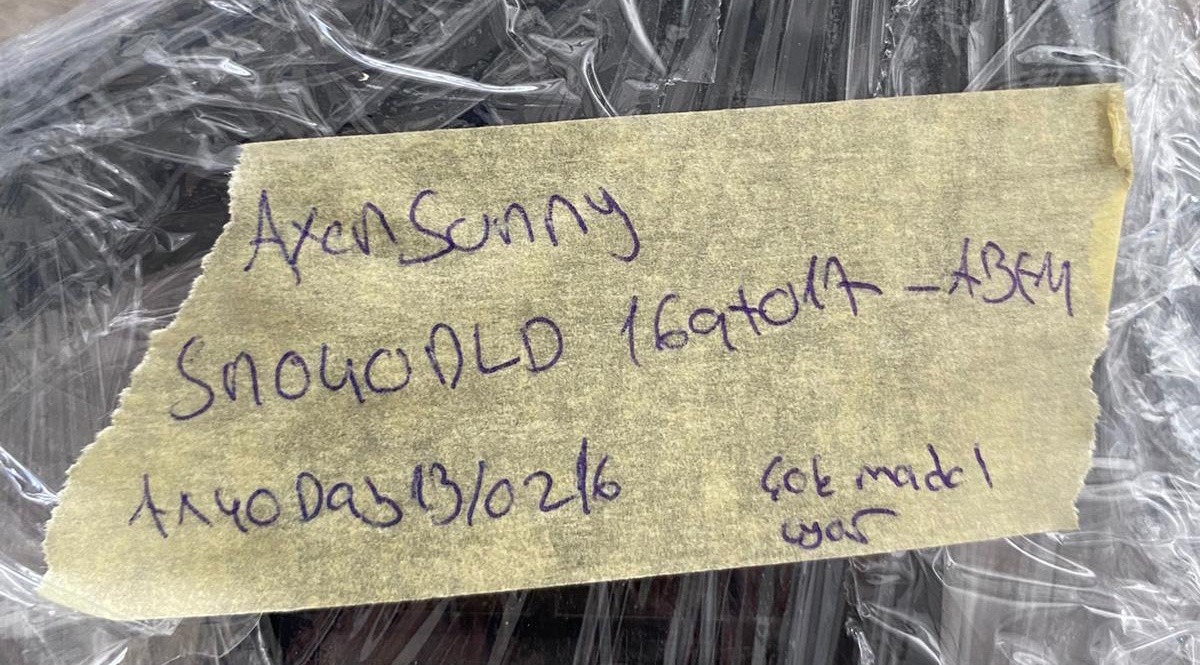 Axen Sunny
Sn040DLD 169t017 - ABFM
Ax40Dab13/0216
Çok model
uyar